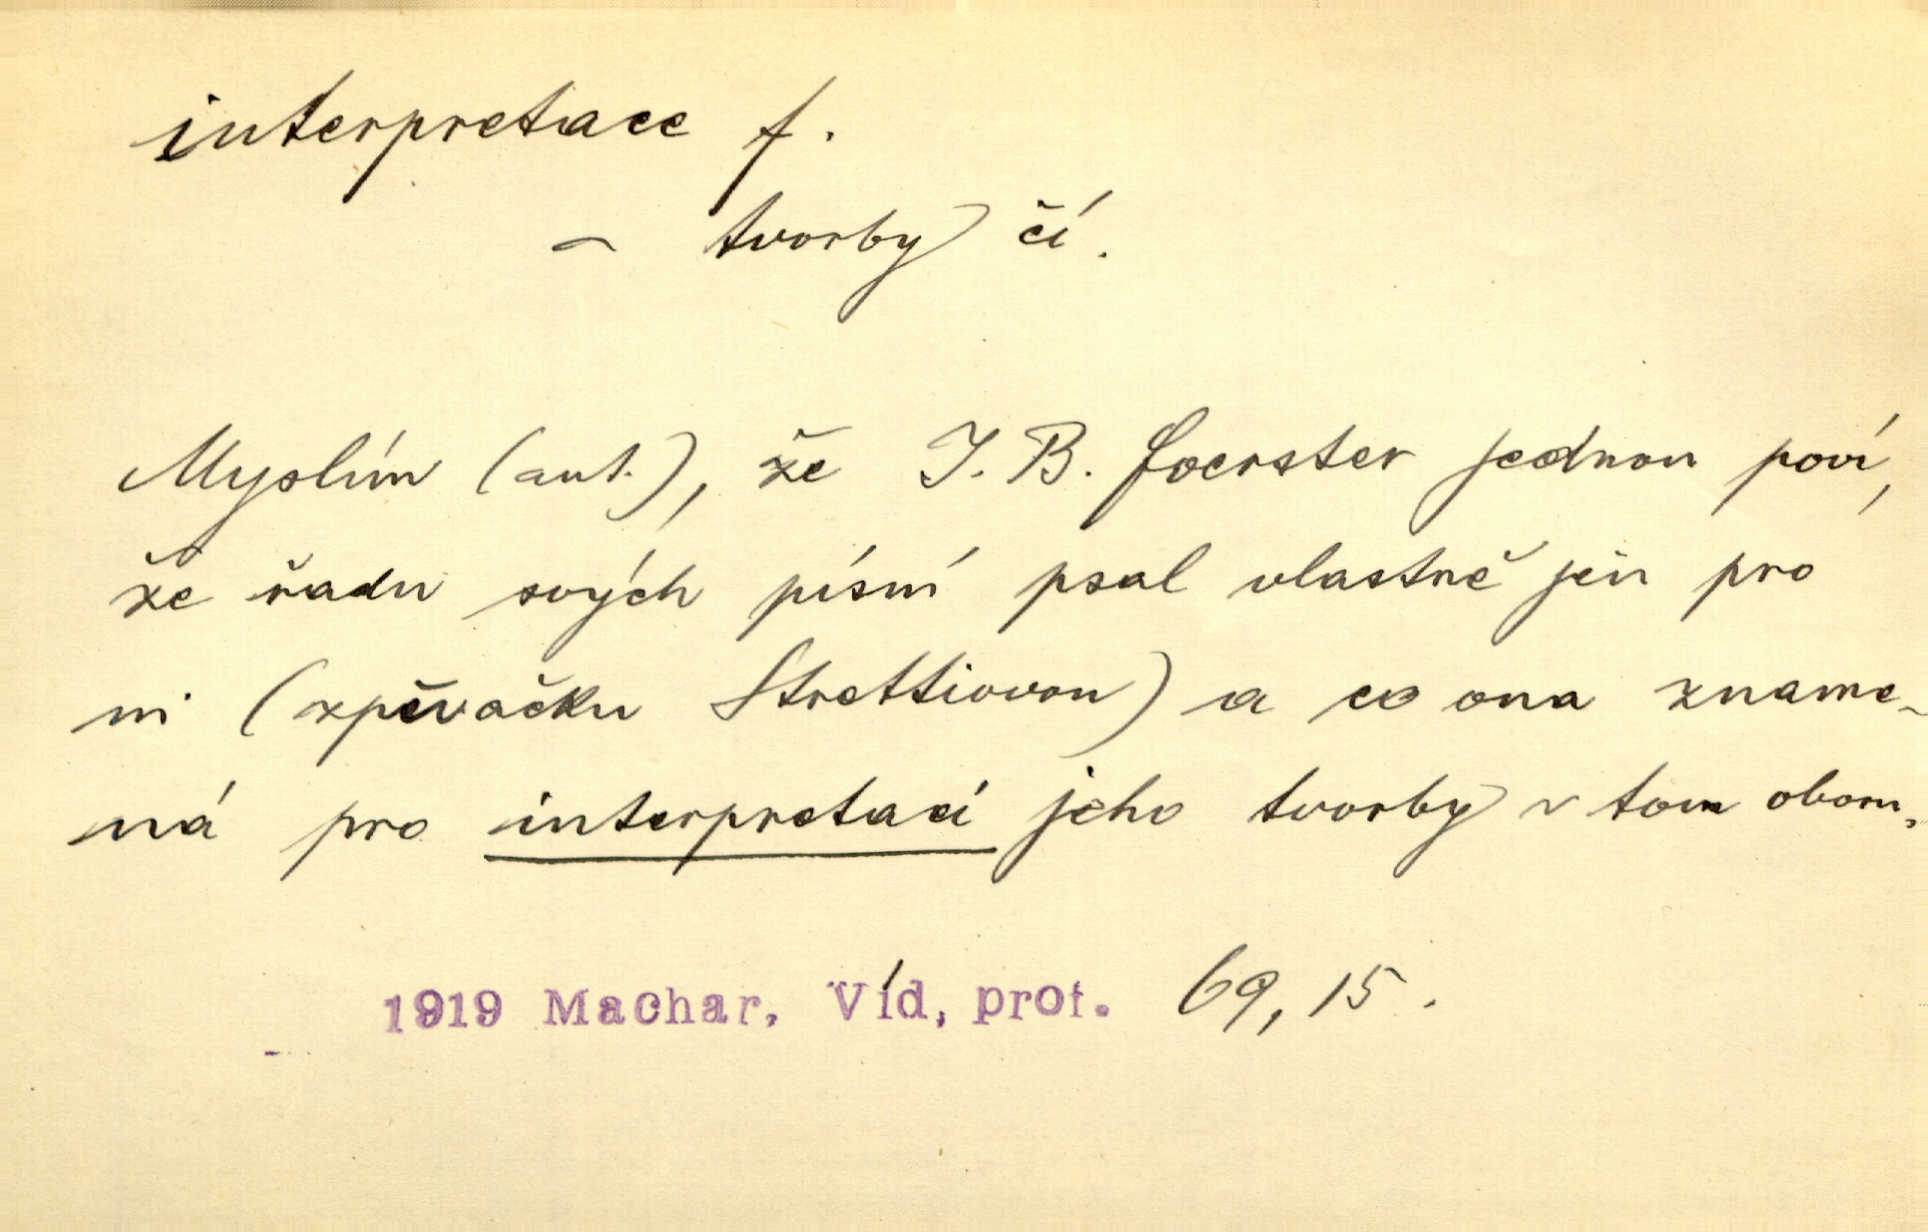 interpretace f.
~ tvorby čí.
Myslím (aut.), že J. B. Foerster jednou poví,
že řadu svých písní psal vlastně jen pro
ni (zpěvačku Strettiovou) a co ona zname-
ná pro interpretaci jeho tvorby v tom oboru.
1919 Machar, Víd, prof. 69, 15.